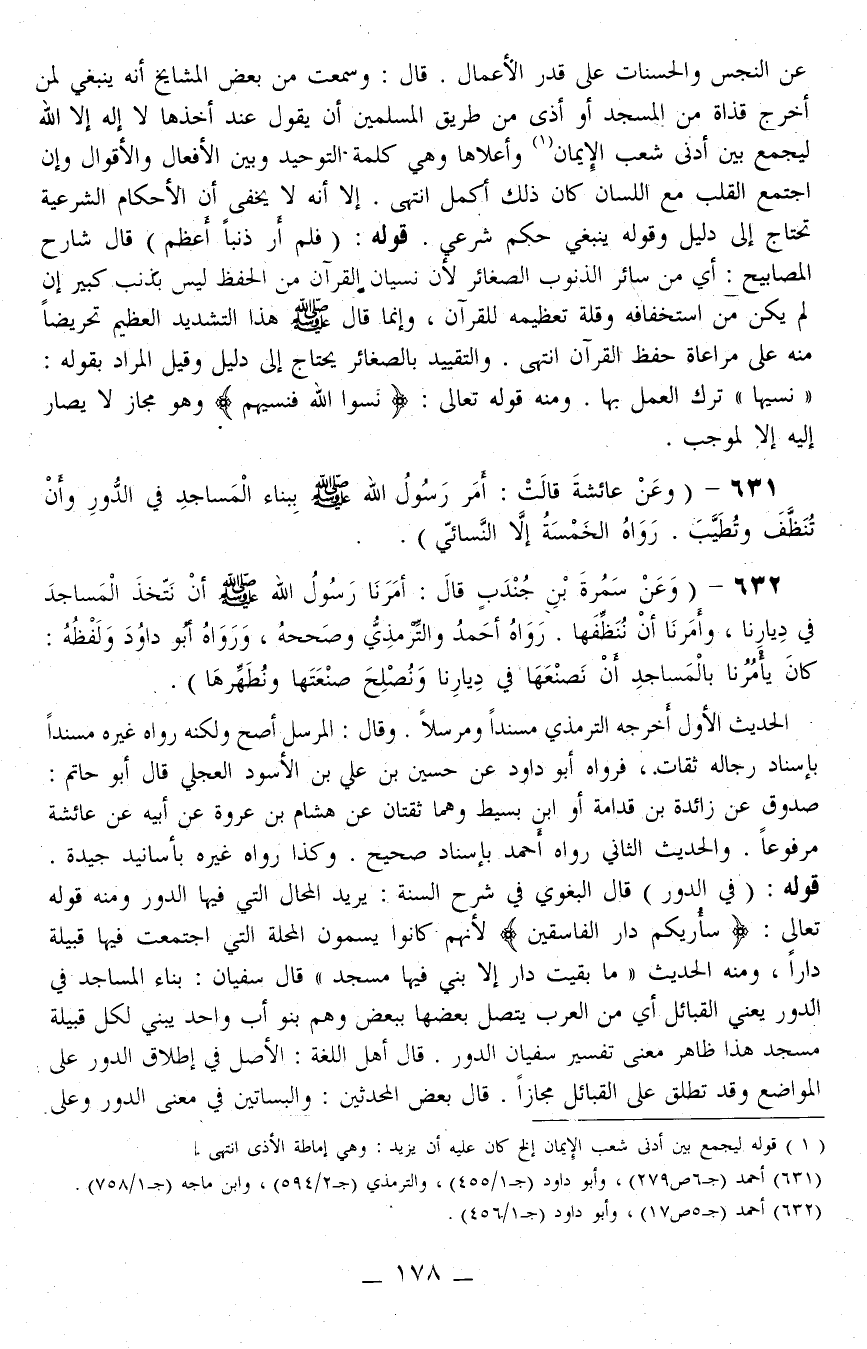 عن النجس والحسنات على قدر الأعمال . قال : وسمعت من بعض المشايخ أنه ينبغي لمن
أخرج قذاة من المسجد أو أذى من طريق المسلمين أن يقول عند أخذها لا إله إلا الله
ليجمع بين أدنى شعب الإيمان(١) وأعلاها وهي كلمة التوحيد وبين الأفعال والأقوال وإن
اجتمع القلب مع اللسان كان ذلك أكمل انتهى . إلا أنه لا يخفى أن الأحكام الشرعية
تحتاج إلى دليل وقوله ينبغي حكم شرعي . قوله : ( فلم أَر ذنباً أَعظم ) قال شارح
المصابيح : أي من سائر الذنوب الصغائر لأن نسيان القرآن من الحفظ ليس بذنب كبير إن
لم يكن من استخفافه وقلة تعظيمه للقرآن ، وإنما قال ﷺ هذا التشديد العظيم تحريضاً
منه على مراعاة حفظ القرآن انتهى . والتقييد بالصغائر يحتاج إلى دليل وقيل المراد بقوله :
« نسيها » ترك العمل بها . ومنه قوله تعالى : ﴿ نَسوا الله فنسيهم ﴾ وهو مجاز لا يصار
إليه إلا لموجب .
٦٣١ – ( وعَنْ عائشةَ قالَتْ : أَمَر رَسُولُ الله ﷺ بِبناء الْمَساجدِ في الدُّورِ وأَنْ
تُنَظَّفَ وتُطَيَّبَ . رَوَاهُ الخَمْسَةُ إلَّا النَّسائيّ ) .
٦٣٢ – ( وَعَنْ سَمُرةَ بْنِ جُنْدَبٍ قالَ : أمَرَنَا رَسُولُ الله ﷺ أنْ نَتّخذَ الْمَساجدَ
في دِيارِنا ، وأَمَرَنا أنْ نُنَظِّفَها . رَوَاهُ أحَمدُ والتِّرْمذِيُّ وصَححهُ ، وَرَوَاهُ أَبُو داوُدَ وَلَفْظُهُ :
كانَ يأْمُرُنا بالْمَساجدِ أَنْ نَصنْعَهَا في دِيارِنا وَنُصْلِحَ صنْعَتَها ونُطَهِّرهَا ) .
الحديث الأول أَخرجه الترمذي مسنداً ومرسلاً . وقال : المرسل أصح ولكنه رواه غيره مسنداً
بإسناد رجاله ثقات ، فرواه أبو داود عن حسين بن علي بن الأسود العجلي قال أبو حاتم :
صدوق عن زائدة بن قدامة أو ابن بسيط وهما ثقتان عن هشام بن عروة عن أبيه عن عائشة
مرفوعاً . والحديث الثاني رواه أَحمد بإسناد صحيح . وكذا رواه غيره بأسانيد جيدة .
قوله : ( في الدور ) قال البغوي في شرح السنة : يريد المحال التي فيها الدور ومنه قوله
تعالى : ﴿ سأُريكم دار الفاسقين ﴾ لأنهم كانوا يسمون المحلة التي اجتمعت فيها قبيلة
داراً ، ومنه الحديث « ما بقيت دار إلا بني فيها مسجد » قال سفيان : بناء المساجد في
الدور يعني القبائل أي من العرب يتصل بعضها ببعض وهم بنو أب واحد يبني لكل قبيلة
مسجد هذا ظاهر معنى تفسير سفيان الدور . قال أهل اللغة : الأصل في إطلاق الدور على
المواضع وقد تطلق على القبائل مجازاً . قال بعض المحدثين : والبساتين في معنى الدور وعلى
( ١ ) قوله ليجمع بين أدنى شعب الإيمان إلخ كان عليه أن يزيد : وهي إماطة الأذى انتهى
(٦٣١) أحمد (جـ٦ص٢٧٩) ، وأبو داود (جـ١/٤٥٥) ، والترمذي (جـ٢/٥٩٤) ، وابن ماجه (جـ١/٧٥٨) .
(٦٣٢) أحمد (جـ٥ص١٧) ، وأبو داود (جـ١/٤٥٦) .
– ١٧٨ –